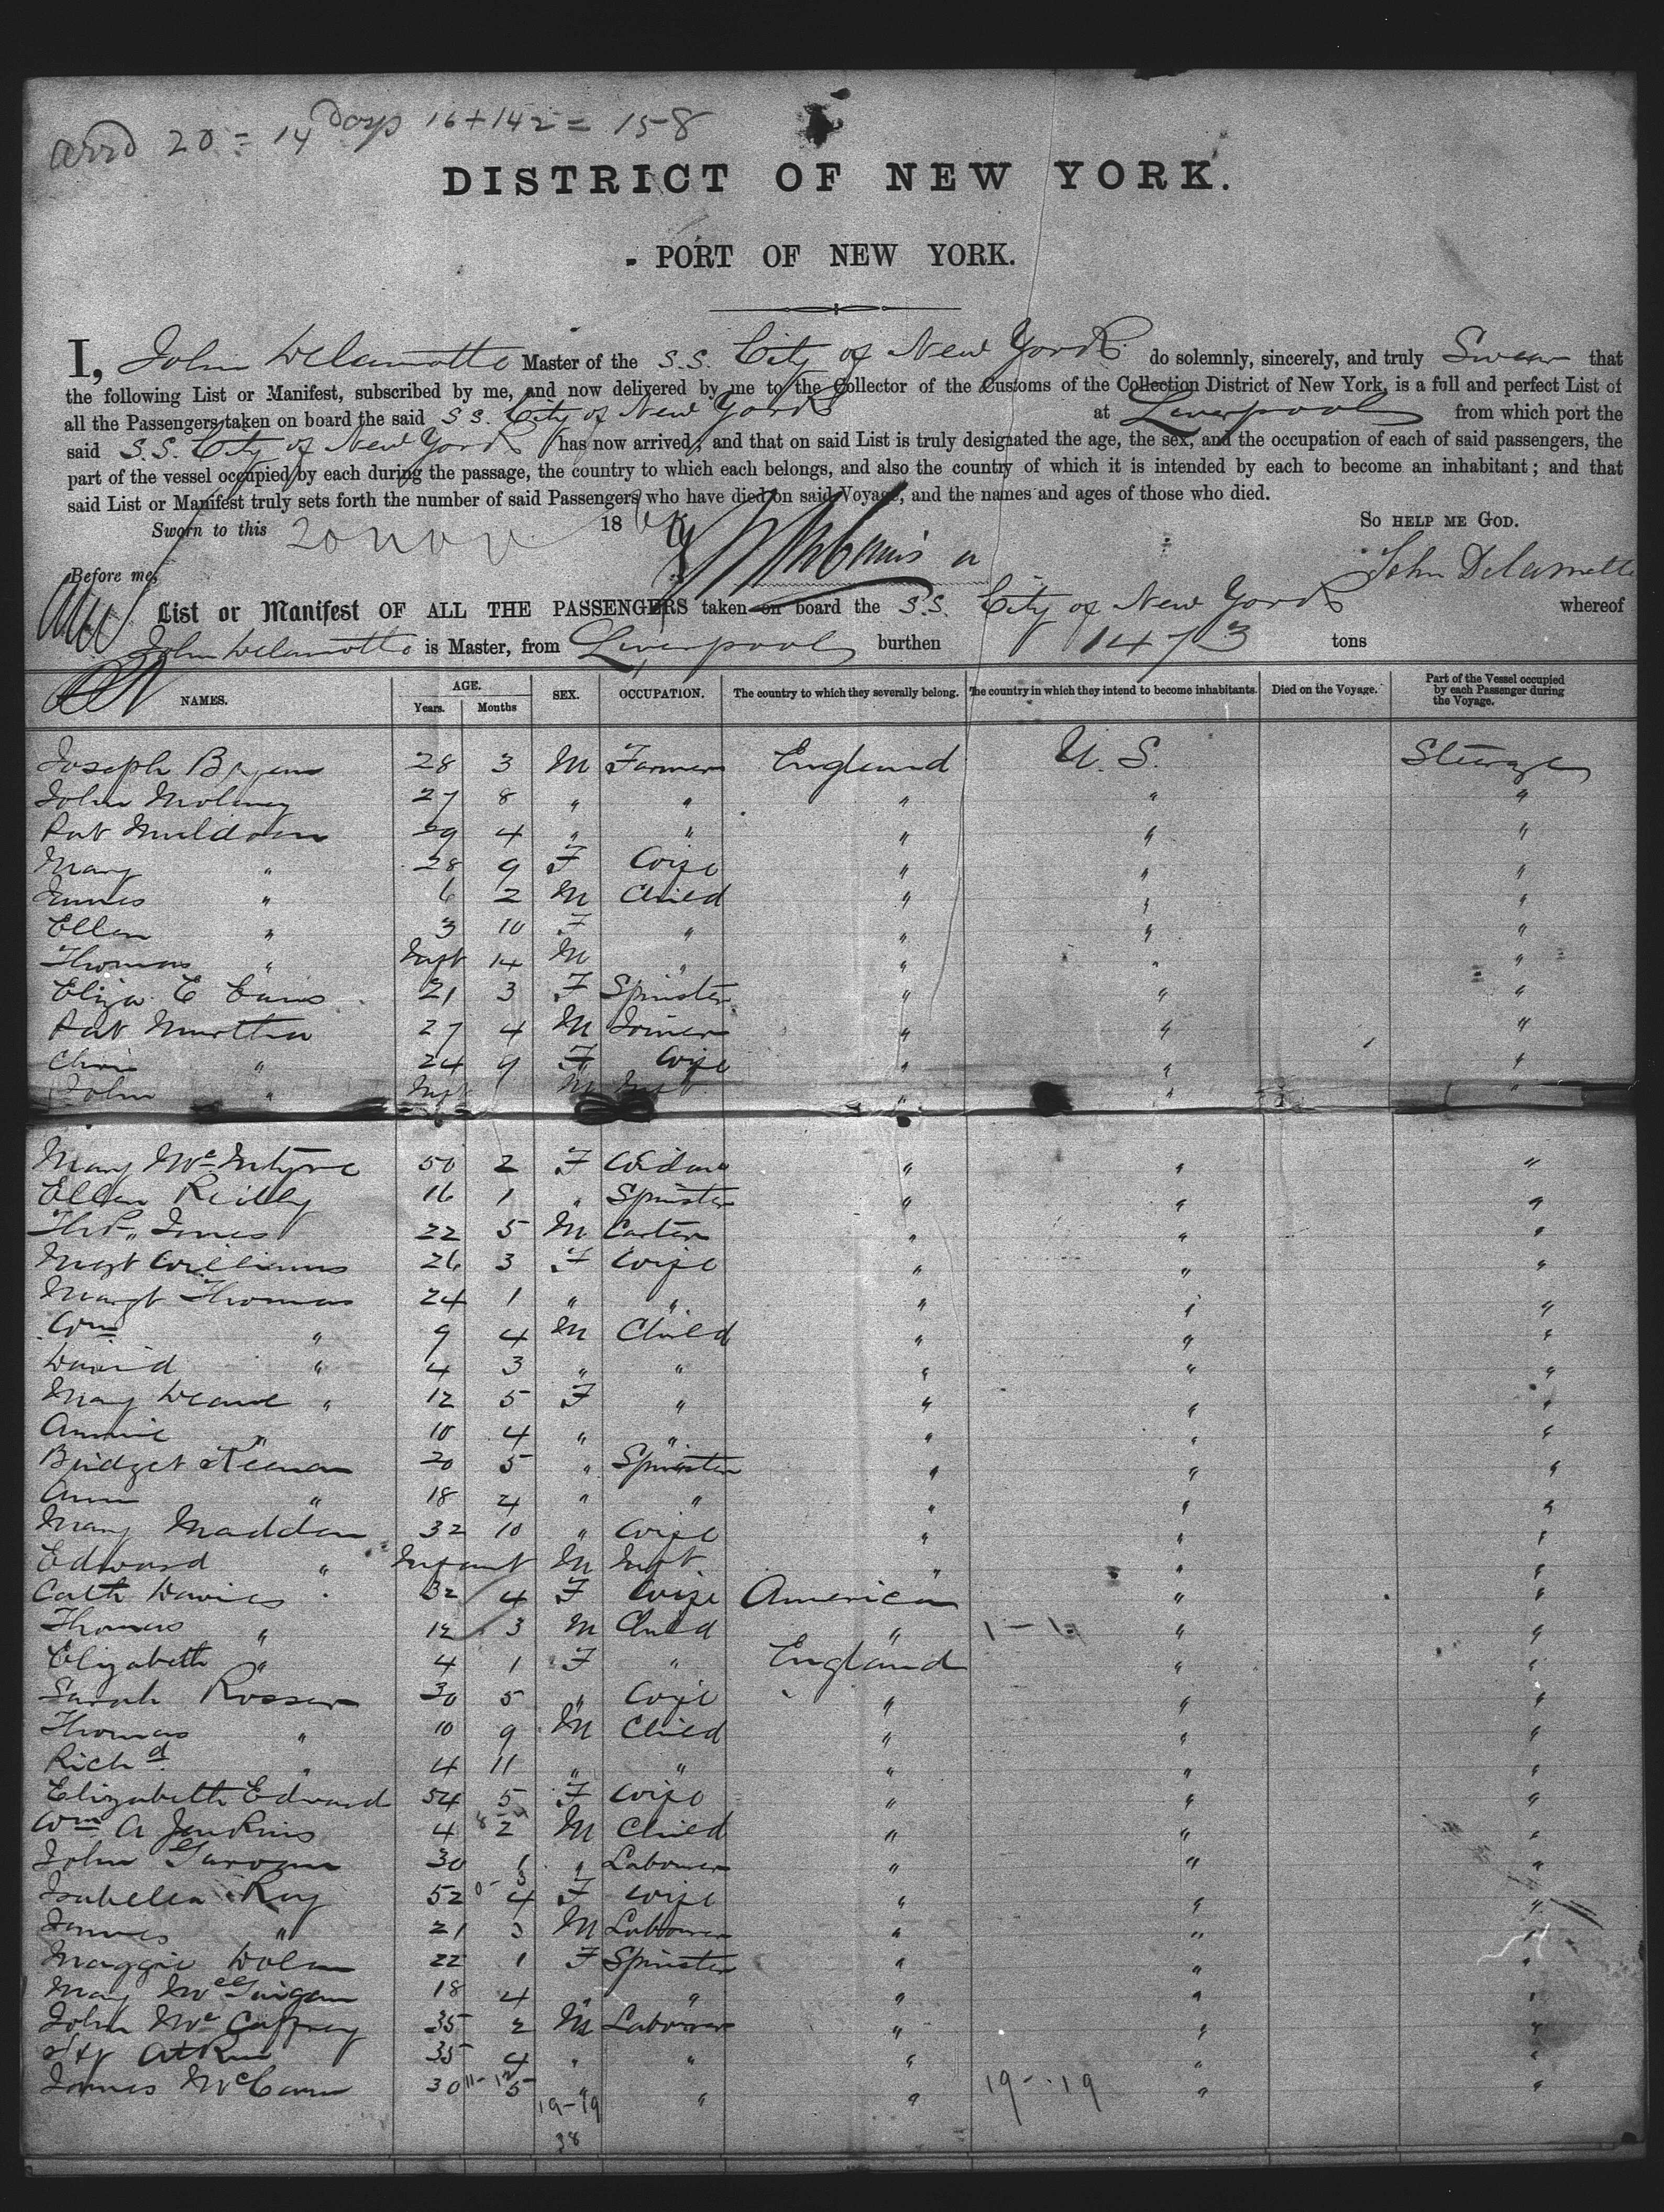 arrd 20 = 14 Days 16 + 142 = 158
DISTRICT OF NEW YORK.
PORT OF NEW YORK.
I, John Delamotte Master of the S.S. City of New York do solemnly, sincerely, and truly Swear that
the following List or Manifest, subscribed by me, and now delivered by me to the Collector of the Customs of the Collection District of New York, is a full and perfect List of
all the Passengers taken on board the said S.S. City of New York at Liverpool from which port the
said S.S. City of New York has now arrived; and that on said List is truly designated the age, the sex, and the occupation of each of said passengers, the
part of the vessel occupied by each during the passage, the country to which each belongs, and also the country of which it is intended by each to become an inhabitant; and that
said List or Manifest truly sets forth the number of said Passengers who have died on said Voyage, and the names and ages of those who died.
Sworn to this 20 Nov 18 SO HELP ME GOD.
Before me, John Delamotte
List or Manifest OF ALL THE PASSENGERS taken on board the S.S. City of New York whereof
John Delamotte is Master, from Liverpool burthen 1473 tons
NAMES. AGE. Years. Months SEX. OCCUPATION. The country to which they severally belong. The country in which they intend to become inhabitants. Died on the Voyage. Part of the Vessel occupied by each Passenger during the Voyage.
Joseph 28 3 M Farmer England U.S. Steerage
John Moloney 27 8 " " " " "
Pat Muldoon 29 4 " " " " "
Mary " 28 9 F Wife " " "
James " 6 2 M Child " " "
Ellen " 3 10 F " " " "
Thomas " Inft 14 M " " " "
Eliza E Evans 21 3 F Spinster " " "
Pat Murtha 27 4 M Joiner " " "
" 24 9 F Wife " " "
John " Inft M Inft " " "
Mary McIntyre 50 2 F Widow " " "
Ellen Reilly 16 1 " Spinster " " "
Thos Jones 22 5 M Carter " " "
Margt Williams 26 3 F Wife " " "
Margt Thomas 24 1 " " " " "
Wm " 9 4 M Child " " "
David " 4 3 " " " " "
Mary " 12 5 F " " " "
Annie " 10 4 " " " " "
Bridget Keenan 20 5 " Spinster " " "
Ann " 18 4 " " " " "
Mary Madden 32 10 " Wife " " "
Edward " Infant M Inft " " "
Cath Davies 32 4 F Wife America " "
Thomas " 12 3 M Child " 1 - 1 " "
Elizabeth " 4 1 F " England " "
Sarah Rosser 30 5 " Wife " " "
Thomas " 10 9 M Child " " "
Richd " 4 11 " " " " "
Elizabeth Edward 54 5 F Wife " " "
Wm A Jenkins 4 2 M Child " " "
John 30 1 " Labourer " " "
Isabella Roy 52 4 F Wife " " "
James " 21 3 M Labourer " " "
Maggie Dolan 22 1 F Spinster " " "
Mary McGuigan 18 4 " " " " "
John McCaffrey 35 2 M Labourer " " "
Atkin 35 4 " " " " "
James McCann 30 5 " " " 19 - 19 " "
19 - 19
38